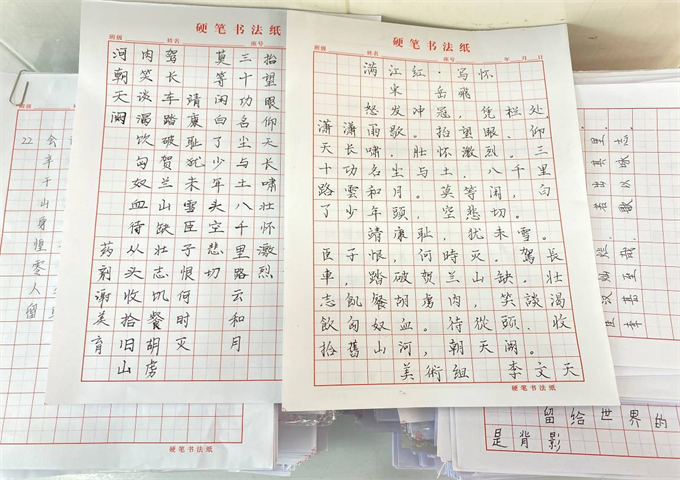 硬笔书法纸
班级 姓名 座号
抬望眼仰天长啸壮怀激烈
三十功名尘与土八千里路云和月
莫等闲白了少年头空悲切
靖康耻犹未雪臣子恨何时灭
驾长车踏破贺兰山缺壮志饥餐胡虏
肉笑谈渴饮匈奴血待从头收拾旧山
河朝天阙 谢美育
硬笔书法纸
班级 姓名 座号 年 月 日
满江红·写怀
宋 岳飛
怒发冲冠,凭栏处,
潇潇雨歇。抬望眼、仰
天长啸,壮怀激烈。三
十功名尘与土,八千里
路雲和月。莫等闲,白
了少年頭,空悲切。
靖康耻,犹未雪。
臣子恨,何時灭。駕長
車,踏破贺兰山缺。壮
志飢餐胡虏肉,笑談渴
飲匈奴血。待從頭、收
拾舊山河,朝天闕。
美術组 李文天
硬笔书法纸
硬笔书法纸
22
留给世界的
是背影